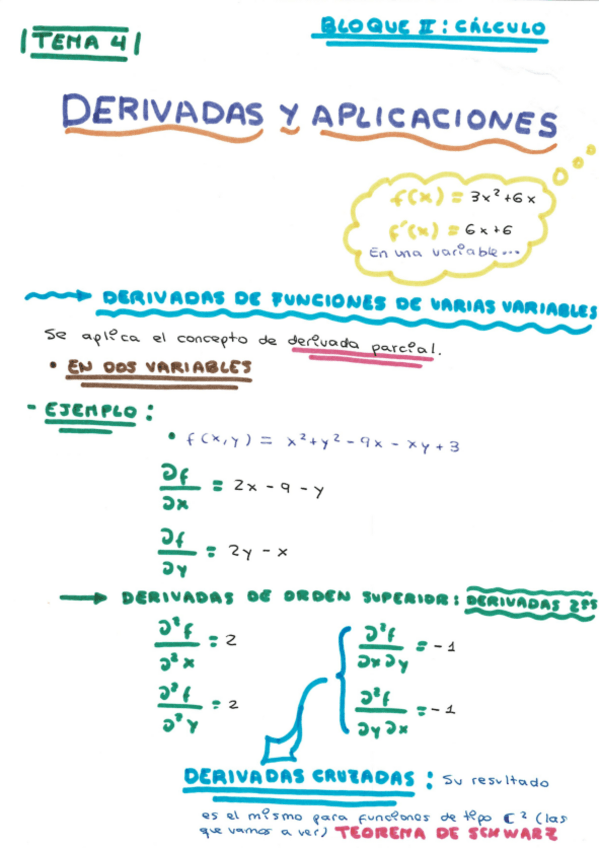 TEMA 4
BLOQUE II : CÁLCULO
DERIVADAS Y APLICACIONES
f(x) = 3x² + 6x
f'(x) = 6x + 6
En una variable...
DERIVADAS DE FUNCIONES DE VARIAS VARIABLES
Se aplica el concepto de derivada parcial.
• EN DOS VARIABLES
- EJEMPLO :
• f(x,y) = x² + y² - 9x - xy + 3
∂f/∂x = 2x - 9 - y
∂f/∂y = 2y - x
→ DERIVADAS DE ORDEN SUPERIOR : DERIVADAS 2ªˢ
∂²f/∂²x = 2
∂²f/∂x∂y = -1
∂²f/∂²y = 2
∂²f/∂y∂x = -1
DERIVADAS CRUZADAS : Su resultado
es el mismo para funciones de tipo C² (las
que vamos a ver) TEOREMA DE SCHWARZ